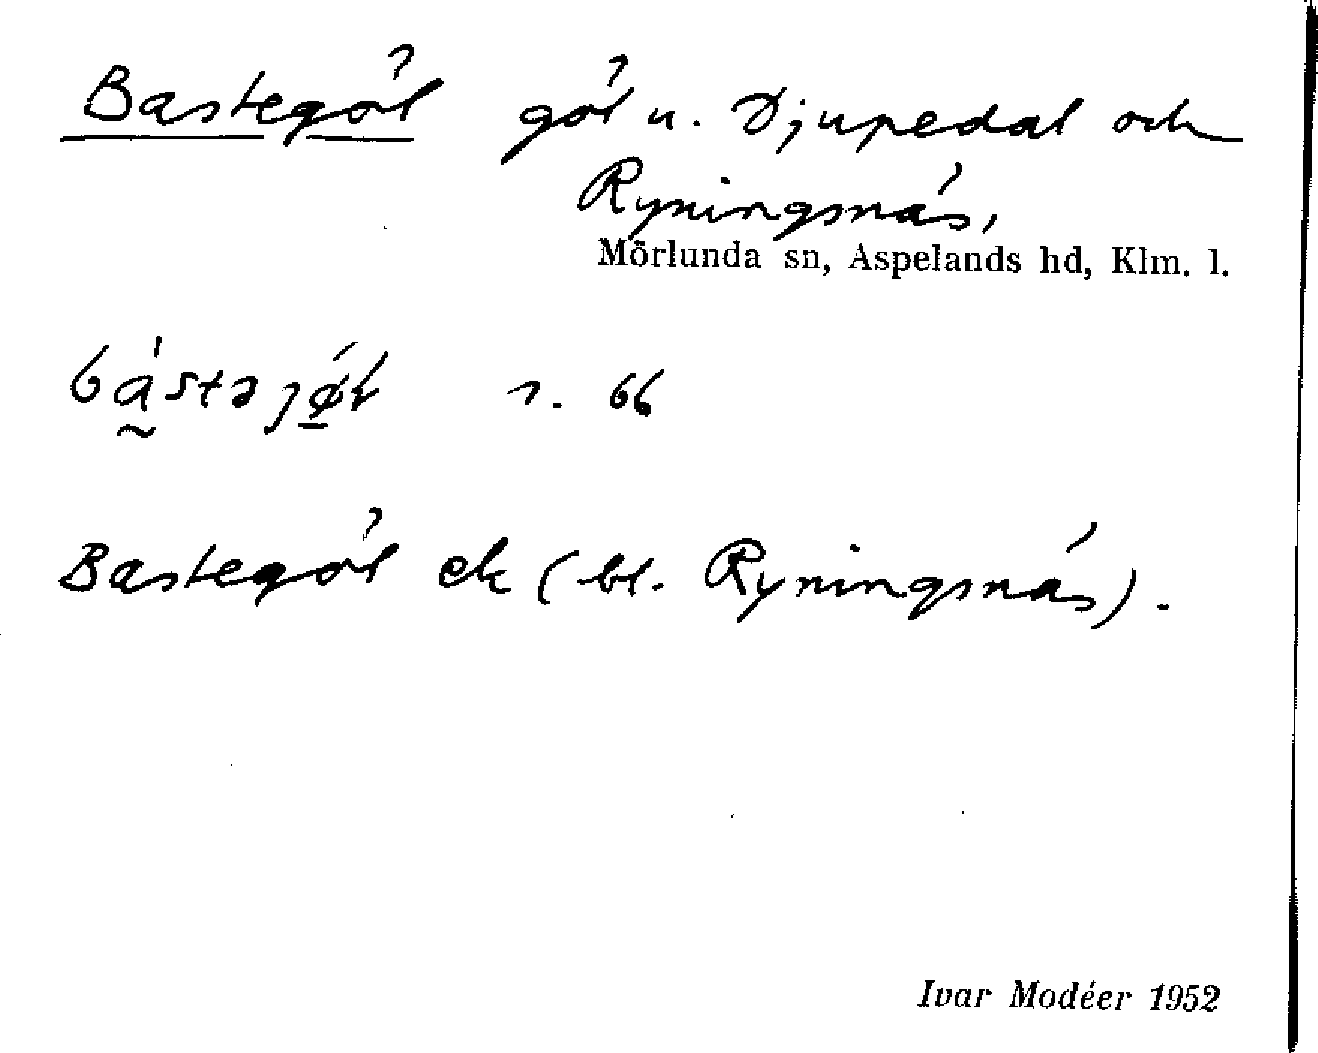 Bastegöl göl u. Djupedal och
Ryningsnäs,
Mörlunda sn, Aspelands hd, Klm. l.
1. 66
Bastegöl ek (bl. Ryningsnäs).
Ivar Modéer 1952